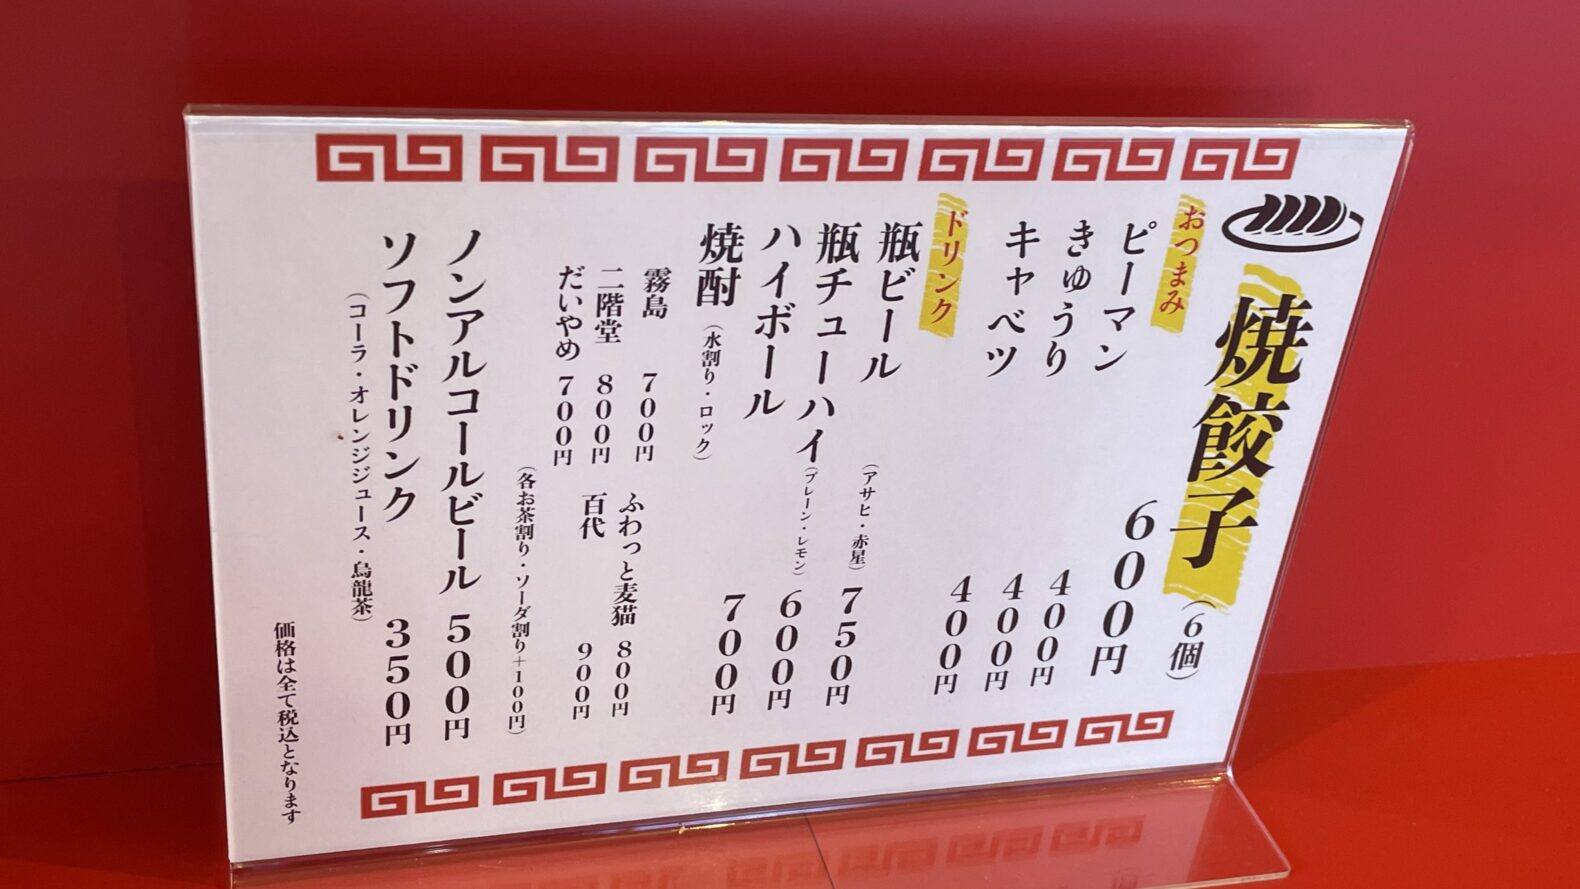 焼餃子(6個)
600円
おつまみ
ピーマン 400円
きゅうり 400円
キャベツ 400円
ドリンク
瓶ビール(アサヒ・赤星) 750円
瓶チューハイ(プレーン・レモン) 600円
ハイボール 700円
焼酎(水割り・ロック)
霧島 700円
二階堂 800円
だいやめ 700円
ふわっと麦猫 800円
百代 900円
(各お茶割り・ソーダ割り+100円)
ノンアルコールビール 500円
ソフトドリンク 350円
(コーラ・オレンジジュース・烏龍茶)
価格は全て税込となります